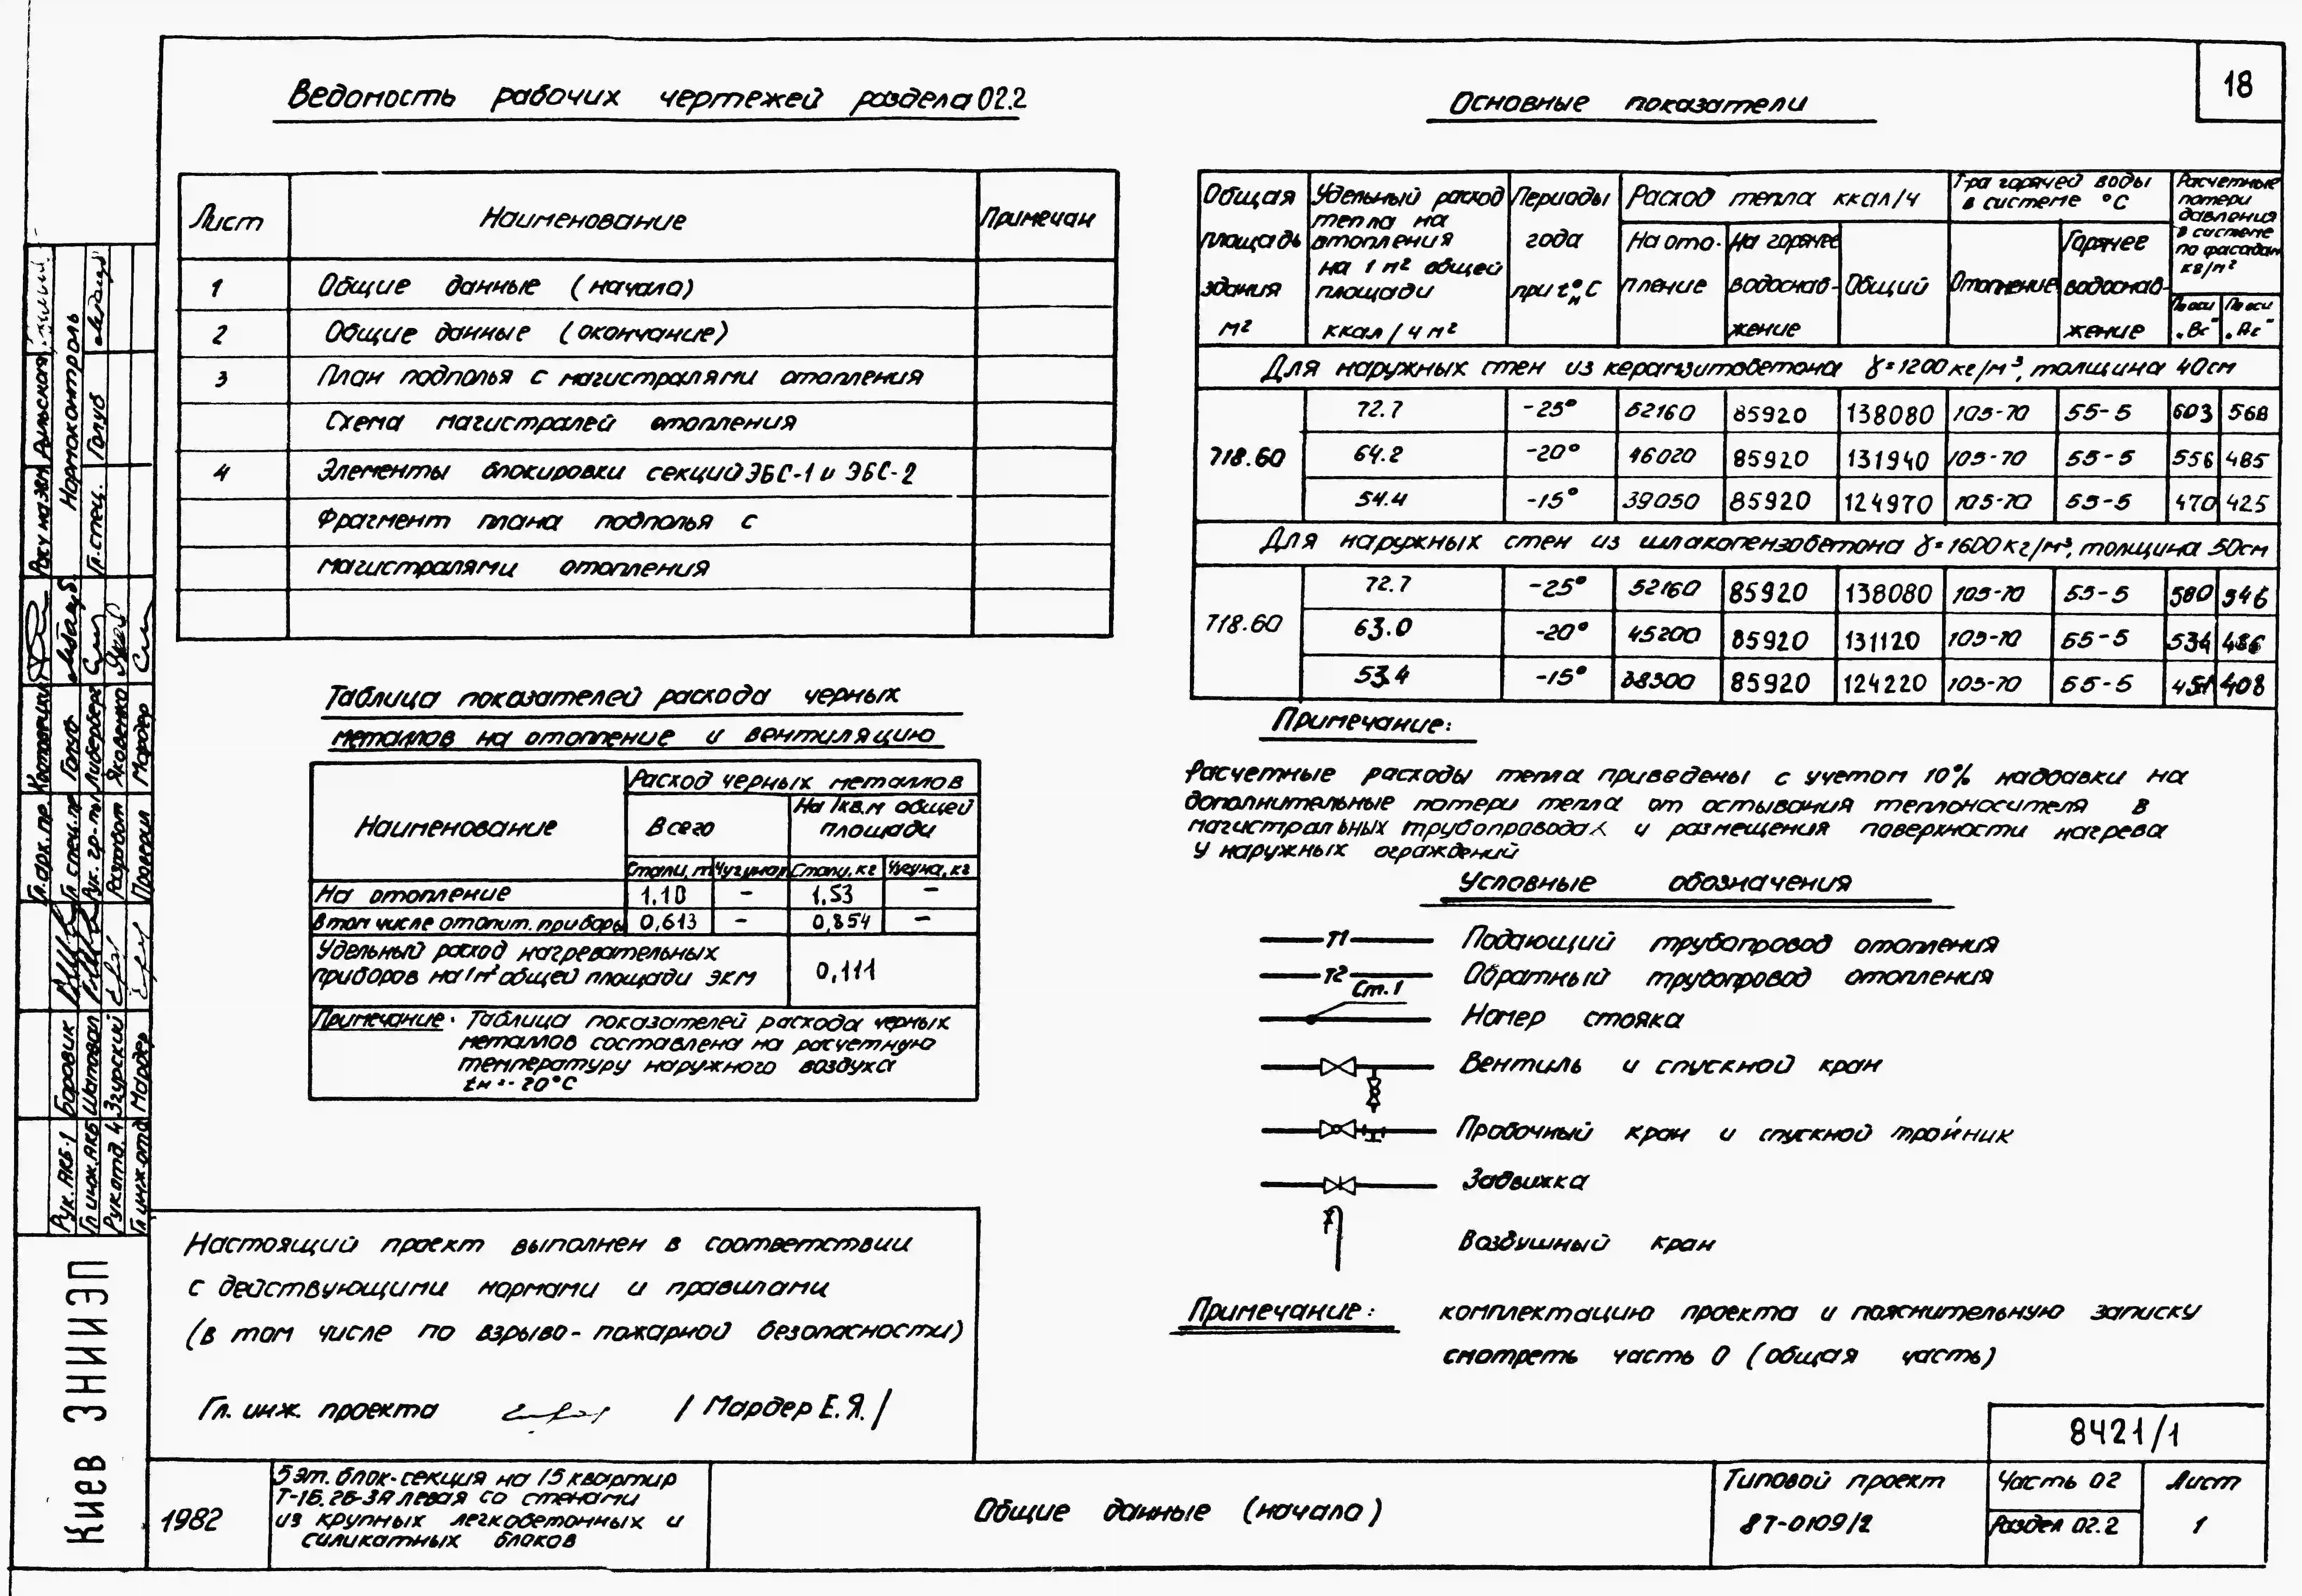 18
Ведомость рабочих чертежей раздела 02.2
Лист Наименование Примечан
1 Общие данные (начало)
2 Общие данные (окончание)
3 План подполья с магистралями отопления
Схема магистралей отопления
4 Элементы блокировки секций ЭБС-1 и ЭБС-2
Фрагмент плана подполья с
магистралями отопления
Таблица показателей расхода черных
металлов на отопление и вентиляцию
Наименование
Расход черных металлов
Всего
На 1 кв.м общей
площади
Стали, т Чугуна, т Стали, кг Чугуна, кг
На отопление 1.10 – 1.53 –
В том числе отопит. приборы 0,613 – 0,854 –
Удельный расход нагревательных
приборов на 1 м² общей площади экм 0,111
Примечание. Таблица показателей расхода черных
металлов составлена на расчетную
температуру наружного воздуха
tн=-20°С
Настоящий проект выполнен в соответствии
с действующими нормами и правилами
(в том числе по взрыво-пожарной безопасности)
Гл. инж. проекта / Мардер Е.Я. /
Основные показатели
Общая
площадь
здания
м²
Удельный расход
тепла на
отопления
на 1 м² общей
площади
ккал/ч м²
Периоды
года
при tн° С
Расход тепла ккал/ч
На ото-
пление
На горячее
водоснаб-
жение
Общий
Т-ра горячей воды
в системе °С
Отопление
Горячее
водоснаб-
жение
Расчетные
потери
давления
в системе
по фасадам
кг/м²
По оси
„Вс"
По оси
„Ас"
Для наружных стен из керамзитобетона γ=1200кг/м³, толщина 40см
718.60
72.7 -25° 52160 85920 138080 105-70 55-5 603 568
64.2 -20° 46020 85920 131940 105-70 55-5 556 485
54.4 -15° 39050 85920 124970 105-70 55-5 470 425
Для наружных стен из шлакопензобетона γ=1600кг/м³, толщина 50см
718.60
72.7 -25° 52160 85920 138080 105-70 55-5 580 546
63.0 -20° 45200 85920 131120 105-70 55-5 534
53.4 -15° 38300 85920 124220 105-70 55-5 451 408
Примечание:
Расчетные расходы тепла приведены с учетом 10% надбавки на
дополнительные потери тепла от остывания теплоносителя в
магистральных трубопроводах и размещения поверхности нагрева
у наружных ограждений
Условные обозначения
Т1 Подающий трубопровод отопления
Т2 Обратный трубопровод отопления
Ст.1 Номер стояка
Вентиль и спускной кран
Пробочный кран и спускной тройник
Задвижка
Воздушный кран
Примечание: комплектацию проекта и пояснительную записку
смотреть часть 0 (общая часть)
8421/1
1982
5 эт. блок-секция на 15 квартир
Т-1Б.2Б-3А левая со стенами
из крупных легкобетонных и
силикатных блоков
Общие данные (начало)
Типовой проект
87-0109/2
Часть 02
Раздел 02.2
Лист
1
Киев ЗНИИЭП
Рук. АКБ-1 Боровик
Гл инж. АКБ Шаповал
Рук отд. 4 Згурский
Гл инж отд Мардер
Гл. арх. пр.
Гл спец. пр Голуб
Рук. гр-пы Либерберг
Разработ Яковенко
Проверил Мардер
Нормоконтроль
Гл. спец. Голуб